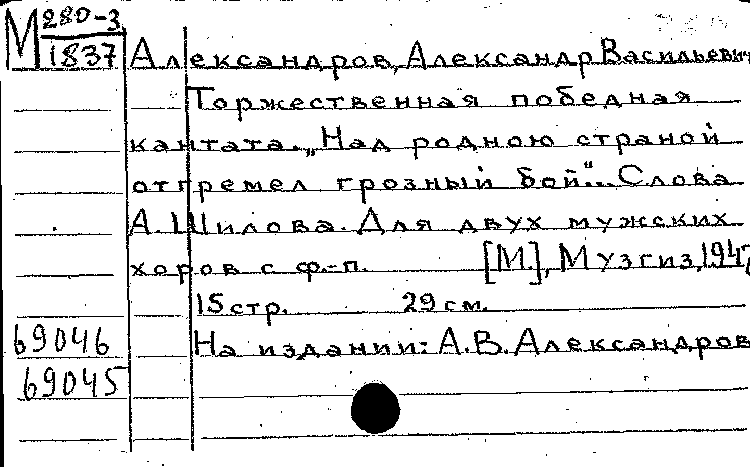 М 280-3
1837
Александров, Александр Васильевич
Торжественная победная
кантата. „Над родною страной
отгремел грозный бой"... Слова
А. Шилова. Для двух мужских
хоров с ф.-п. [М.], Музгиз,
15 стр. 29 см.
69046 На издании: А.В. Александров
69045